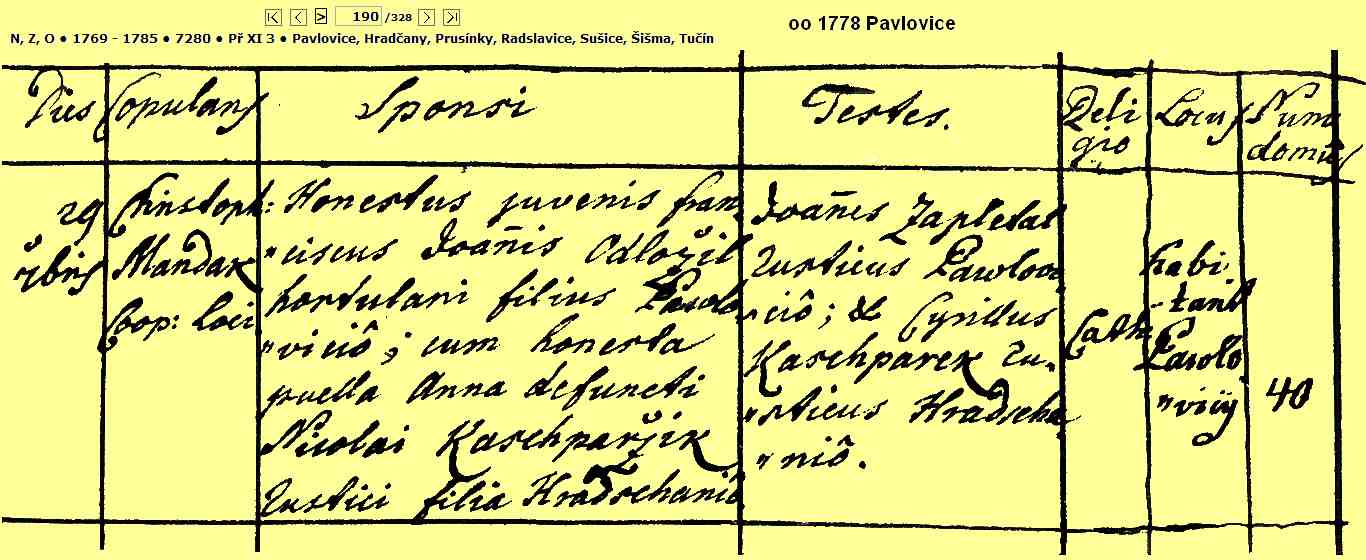 190 /328
oo 1778 Pavlovice
N, Z, O ● 1769 - 1785 ● 7280 ● Př XI 3 ● Pavlovice, Hradčany, Prusínky, Radslavice, Sušice, Šišma, Tučín
Dies
Copulans
Sponsi
Testes.
Religio
Locus
Num domûs
29
Christoph:
Mandak
Coop: Loci
Honestus juvenis fran
„ciscus Joañis Odložil
hortulani filius Pawlo
„viciô; cum honesta
puella Anna defuncti
Nicolai Kaschparžik
Rustici filia Hradschaniô
Joañes Zapletal
Rusticus Pawlow
„iciô; & Cyrillus
Kaschparek Ru„
„sticus Hradscha
„niô.
Cath
habi
„tant
Pawlo
„vicÿ
40